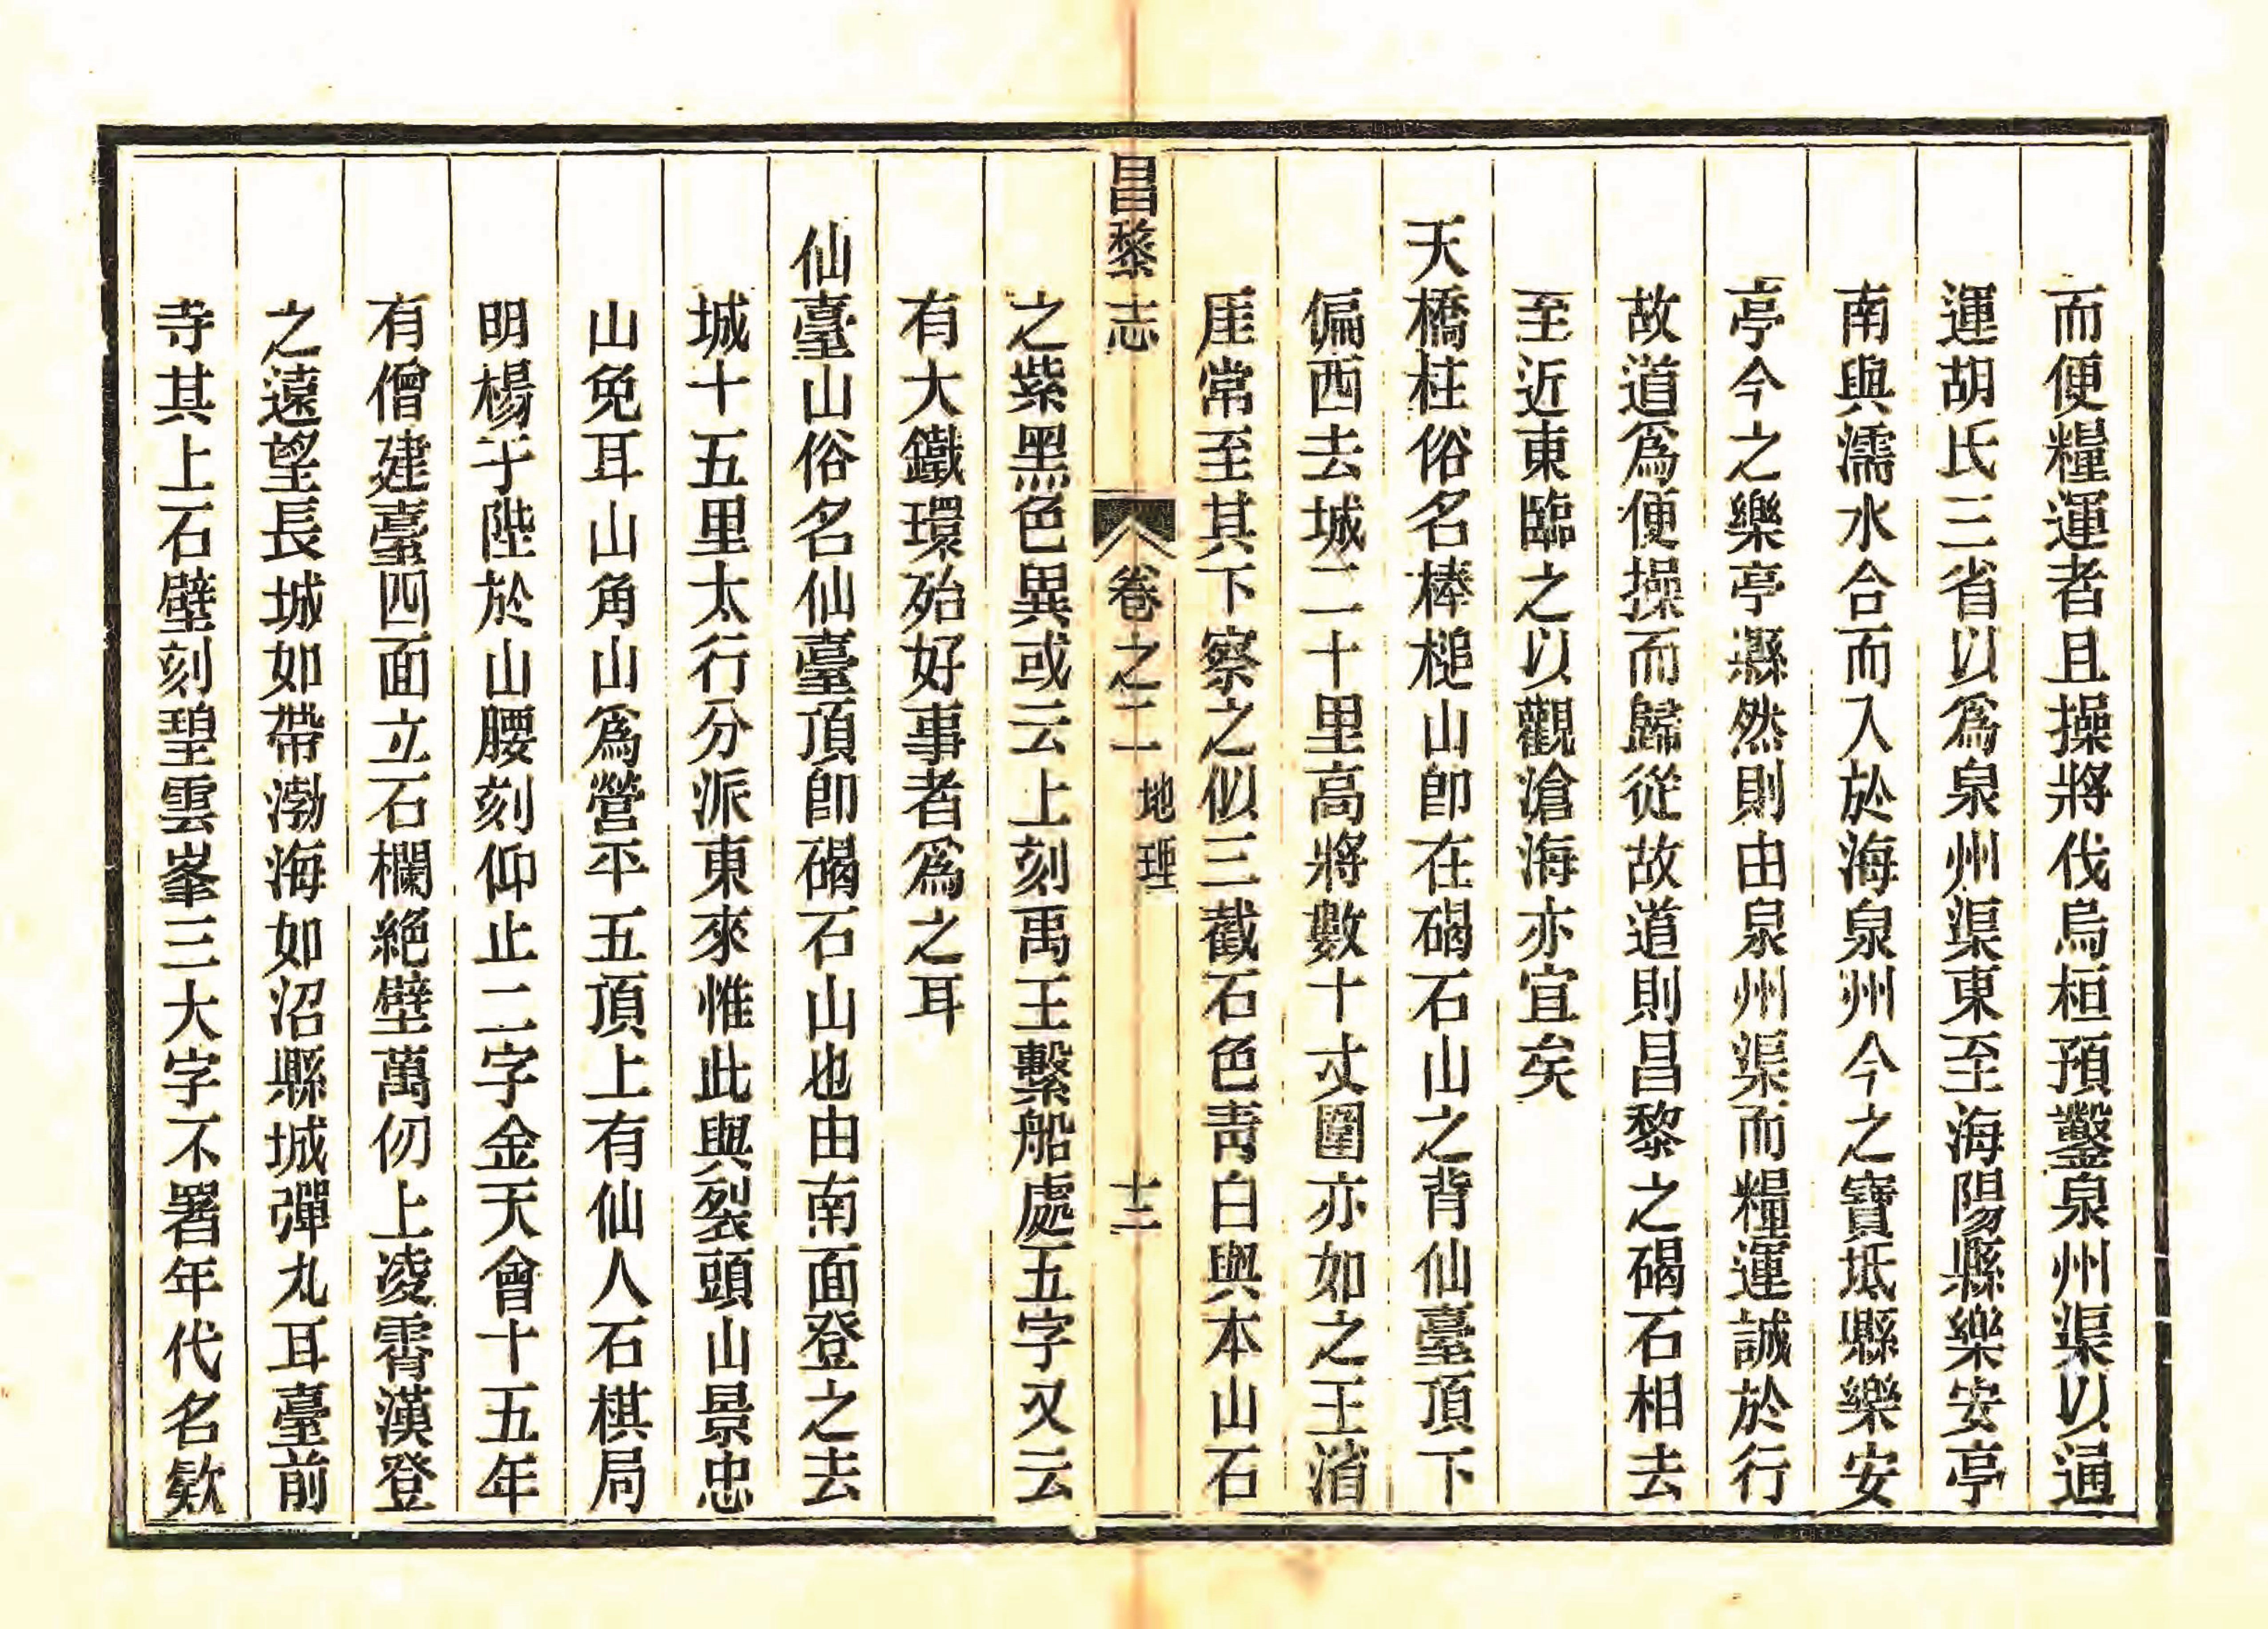 而便糧運者且操將伐烏桓預鑿泉州渠以通
運胡氏三省以爲泉州渠東至海陽縣樂安亭
南與濡水合而入於海泉州今之寶坻縣樂安
亭今之樂亭縣然則由泉州渠而糧運誠於行
故道爲便操而歸從故道則昌黎之碣石相去
至近東臨之以觀滄海亦宜矣
天橋柱俗名棒槌山卽在碣石山之背仙臺頂下
偏西去城二十里高將數十丈圍亦如之王淯
厓常至其下察之似三截石色靑白與本山石
昌黎志 卷之二 地理 十二
之紫黑色異或云上刻禹王繫船處五字又云
有大鐵環殆好事者爲之耳
仙臺山俗名仙臺頂卽碣石山也由南面登之去
城十五里太行分派東來惟此與裂頭山景忠
山兔耳山角山爲營平五頂上有仙人石棋局
明楊于陛於山腰刻仰止二字金天會十五年
有僧建臺四面立石欄絕壁萬仞上凌霄漢登
之遠望長城如帶渤海如沼縣城彈丸耳臺前
寺其上石壁刻碧雲峯三大字不署年代名欵